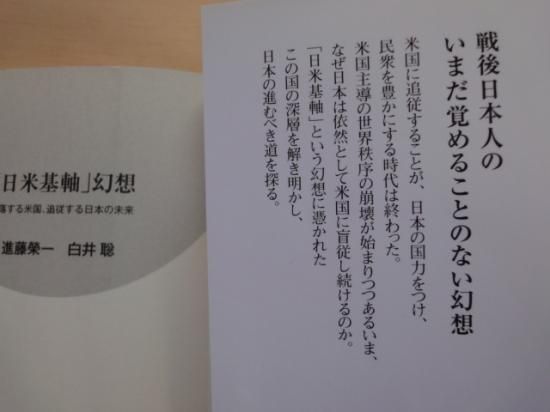 戦後日本人の
いまだ覚めることのない幻想
米国に追従することが、日本の国力をつけ、
民衆を豊かにする時代は終わった。
米国主導の世界秩序の崩壊が始まりつつあるいま、
なぜ日本は依然として米国に盲従し続けるのか。
「日米基軸」という幻想に憑かれた
この国の深層を解き明かし、
日本の進むべき道を探る。
「日米基軸」幻想
落する米国、追従する日本の未来
進藤榮一 白井 聡